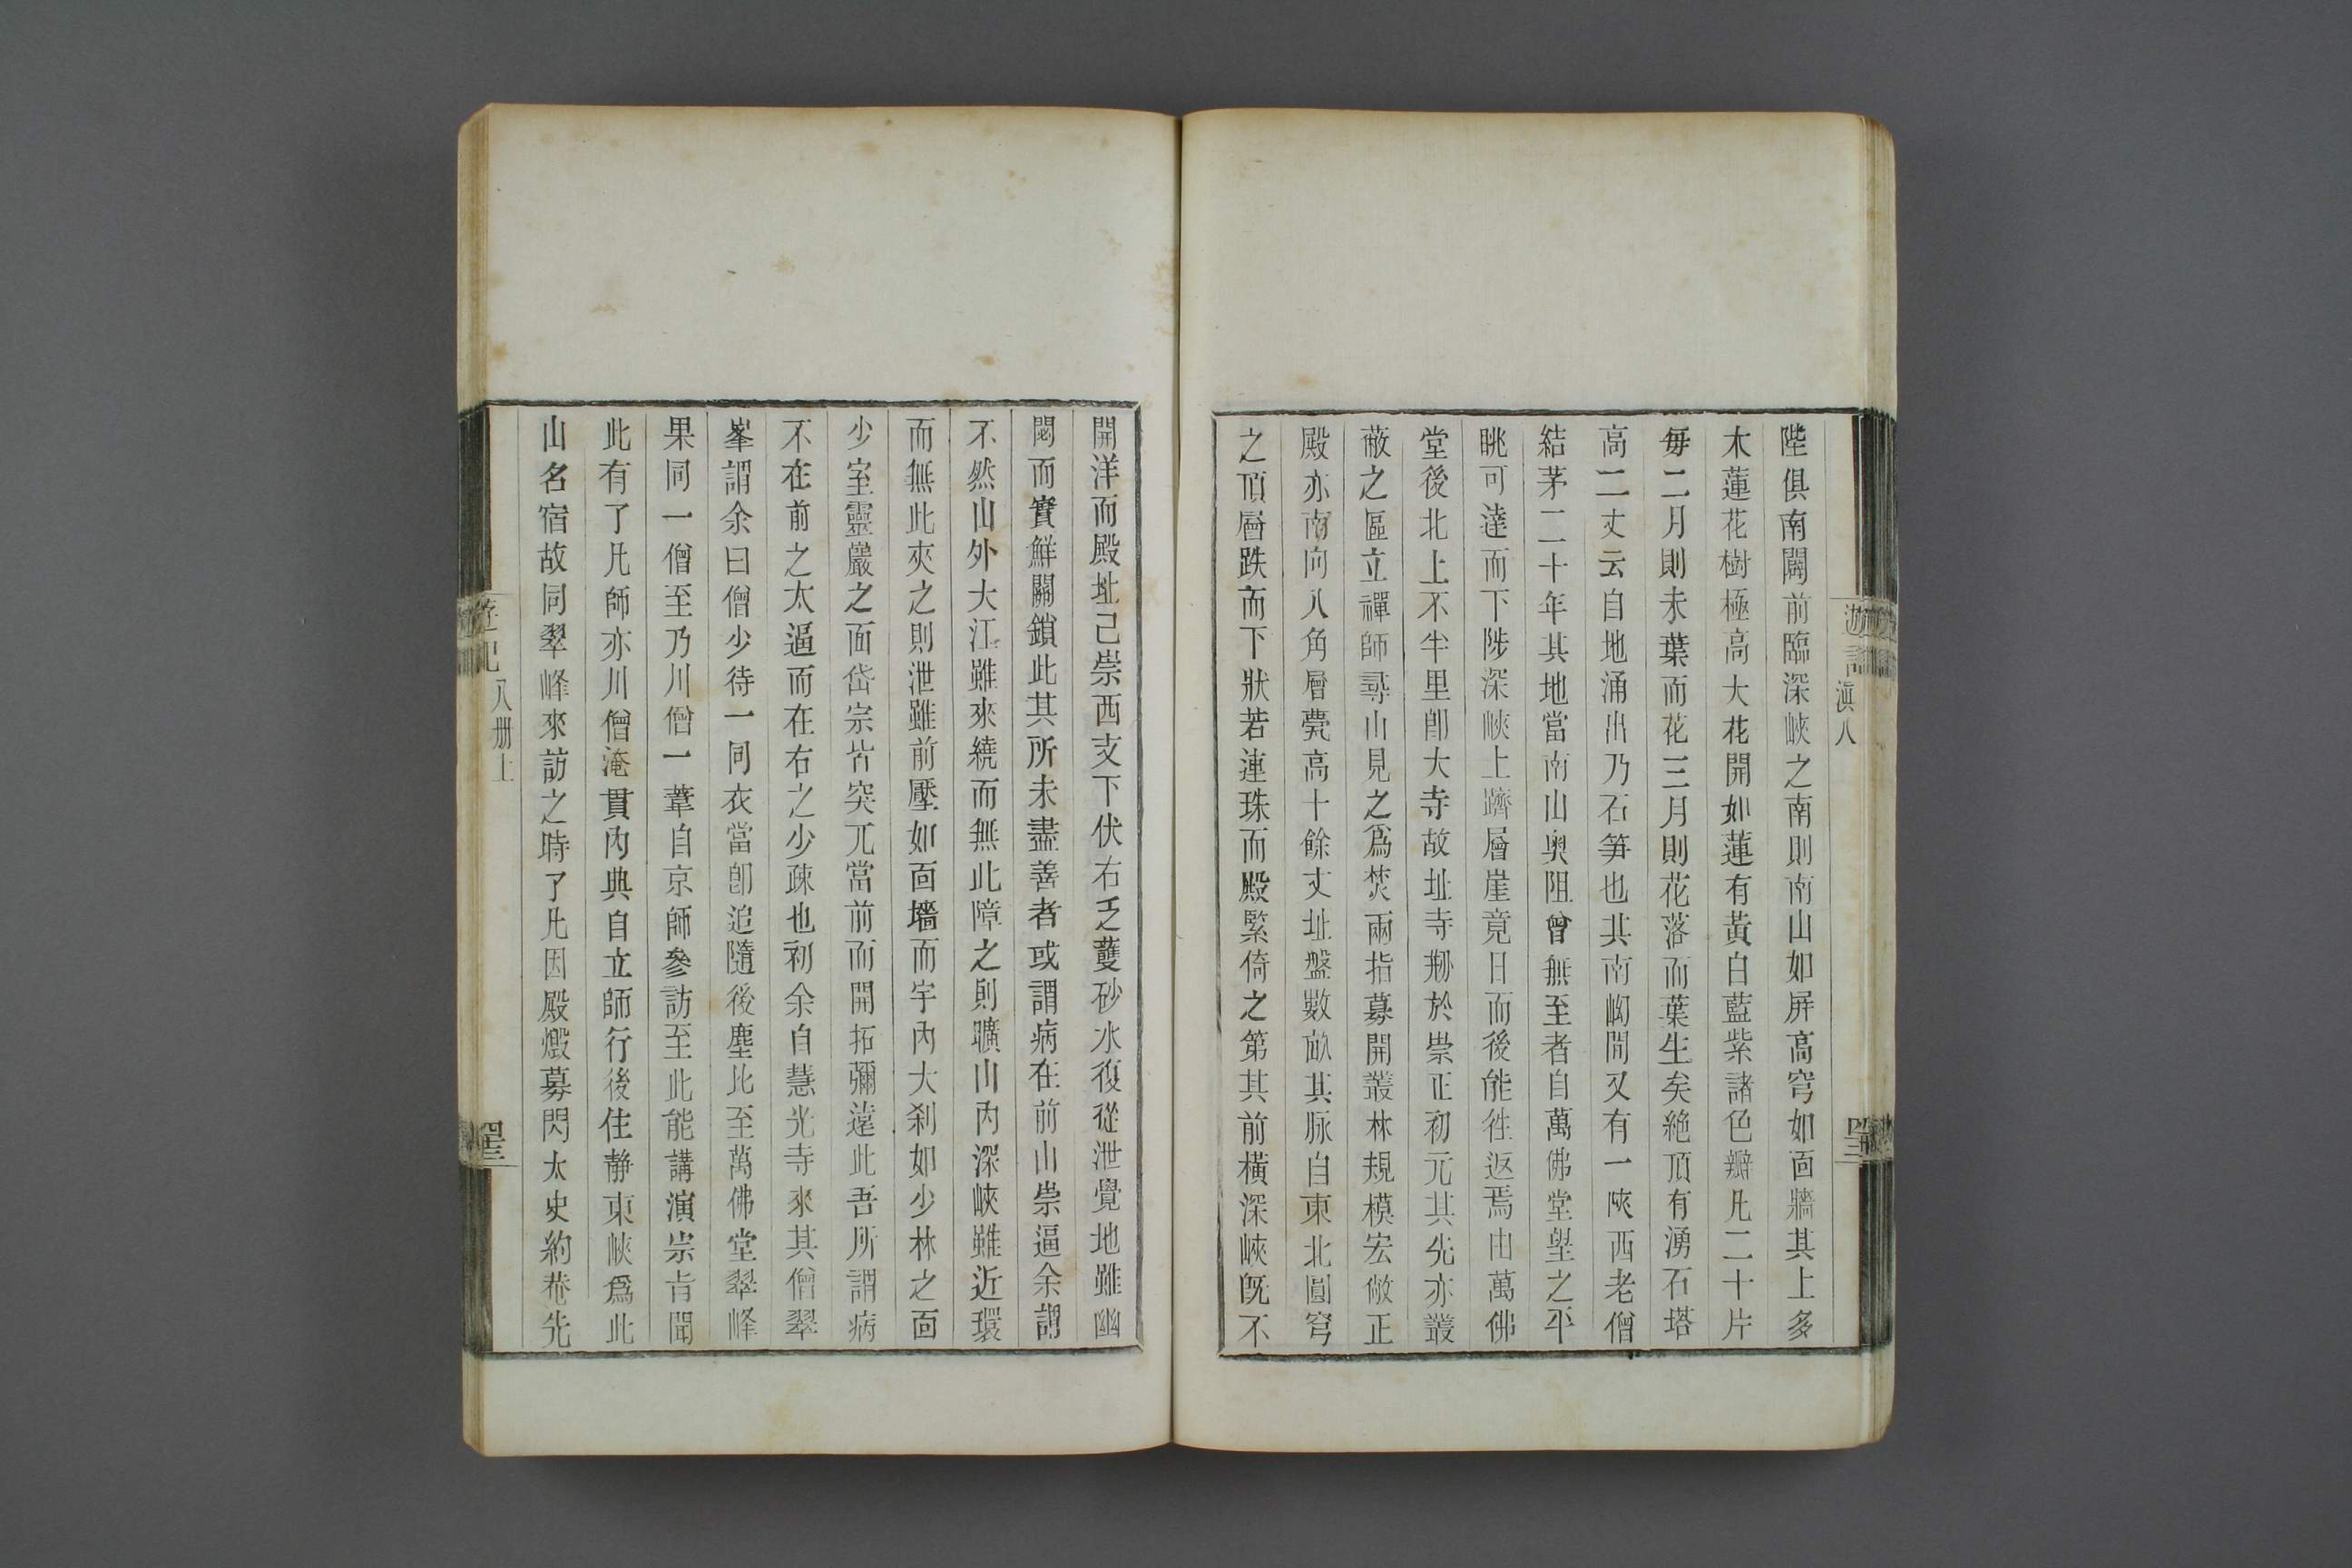 遊記
滇八
四三
陛俱南闢前臨深峽之南則南山如屏高穹如面牆其上多
木蓮花樹極高大花開如蓮有黃白藍紫諸色瓣凡二十片
每二月則未葉而花三月則花落而葉生矣絶頂有湧石塔
高二丈云自地涌出乃石笋也其南岰間又有一陝西老僧
結茅二十年其地當南山奥阻曾無至者自萬佛堂望之平
眺可達而下陟深峽上躋層崖竟日而後能徃返焉由萬佛
堂後北上不半里卽大寺故址寺刱於崇正初元其先亦叢
蔽之區立禪師尋山見之爲焚兩指募開叢林規模宏敞正
殿亦南向八角層甍高十餘丈址盤數畝其脉自東北圓穹
之頂層跌而下狀若連珠而殿緊倚之第其前横深峽旣不
開洋而殿址己崇西支下伏右乏䕶砂水復從泄覺地雖幽
閟而實鮮關鎖此其所未盡善者或謂病在前山崇逼余謂
不然山外大江雖來繞而無此障之則曠山内深峽雖近環
而無此夾之則泄雖前壓如面墻而宇内大刹如少林之面
少室靈巖之面岱宗皆突兀當前而開拓彌遠此吾所謂病
不在前之太逼而在右之少疎也初余自慧光寺來其僧翠
峯謂余曰僧少待一同衣當卽追隨後塵比至萬佛堂翠峰
果同一僧至乃川僧一葦自京師參訪至此能講演宗旨聞
此有了凡師亦川僧淹貫内典自立師行後住静東峽爲此
山名宿故同翠峰來訪之時了凡因殿燬募閃太史約菴先
遊記
八册上
四三